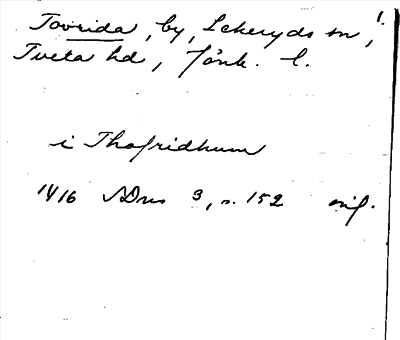 Tovrida, by, Lekeryds sn, 1.
Tveta hd, Jönk. l.
i Thofridhum
1416 SDns 3, s. 152 orig.